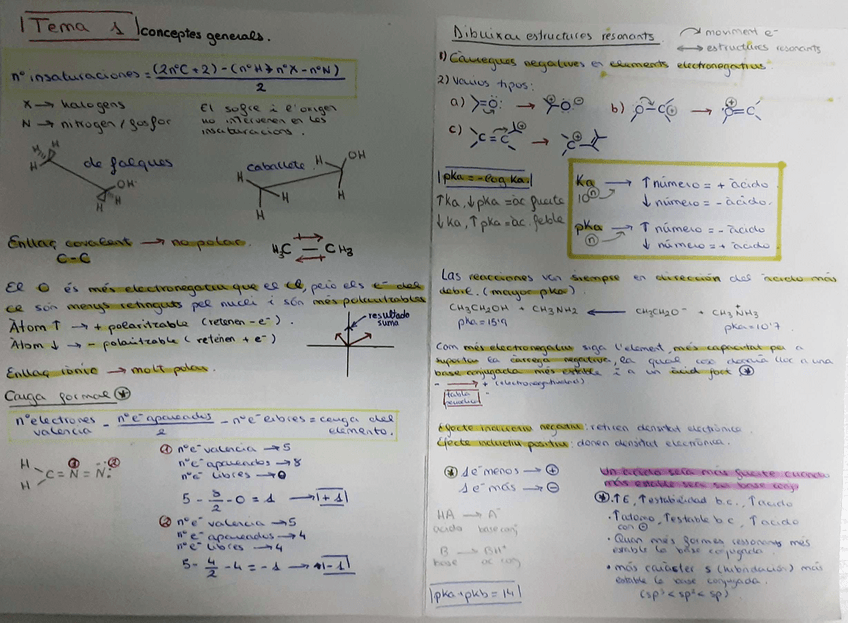 Tema 1 conceptes generals.
nº insaturaciones = (2nºC + 2) - (nºH + nºX - nºN)
2
X → halogens
N → nitrogen / fosfor
El sofre i l'oxigen
no intervenen en les
insaturacions.
de falques
caballete
H
H
H
OH
H
H
H
H
OH
H
Enllaç covalent → no polar.
C-C
H₃C — CH₃
El O és més electronegatiu que el Cl, però els e⁻ del
Cl són menys retinguts pel nucli i són més polaritzables
Àtom ↑ → + polaritzable (retenen - e⁻).
Àtom ↓ → - polaritzable (retenen + e⁻)
resultado
suma
Enllaç iònic → molt polar.
Carga formal *
nº electrones valencia - nº e⁻ apareados / 2 - nº e⁻ libres = carga del elemento.
H
H
C = N = N:
① nº e⁻ valencia → 5
nº e⁻ apareados → 8
nº e⁻ libres → 0
5 - 8/2 - 0 = 1 → +1
② nº e⁻ valencia → 5
nº e⁻ apareados → 4
nº e⁻ libres → 4
5 - 4/2 - 4 = -1 → -1
Dibuixar estructures resonants
moviment e⁻
↔ estructures resonants
1) Càrregues negatives en elements electronegatius.
2) Varios tipos:
a) =Ö: → O⊖
b) O-C⊕ → ⊕O=C
c) C=C ⊕ → ⊕C
pKa = -log Ka
↑Ka, ↓pKa = àc. fuerte
↓Ka, ↑pKa = àc. feble
Ka → ↑ número = + àcido.
10ⁿ ↓ número = - àcido.
pKa → ↑ número = - àcido
n ↓ número = + àcido.
Las reacciones van siempre en dirección del àcido más
débil. (mayor pKa)
CH₃CH₂OH + CH₃NH₂ ← CH₃CH₂O⁻ + CH₃N⁺H₃
pKa = 15'9
pKa = 10'7
Com més electronegatiu sigui l'element, més capacitat per a
suportar la càrrega negativa, la qual cosa donarà lloc a una
base conjugada més estable i a un àcid fort *
- → + (electronegatividad)
tabla
periodica
-
Efecte inductiu negatiu: retiren densitat electrònica.
Efecte inductiu positiu: donen densitat electrònica.
* 1 e⁻ menos → ⊕
1 e⁻ más → ⊖
HA → A⁻
àcido base conj
B → BH⁺
base ac conj
pKa + pKb = 14
Un àcido será más fuerte cuando
más estable sea su base conj
*. ↑E, ↑estabilidad b.c., ↑àcido
· ↑átomo, ↑estable b.c, ↑àcido
con ⊖
· Quan més formes ressonants més
estable la base conjugada
· más caràcter s (hibridación) más
estable la base conjugada.
(sp³ < sp² < sp)